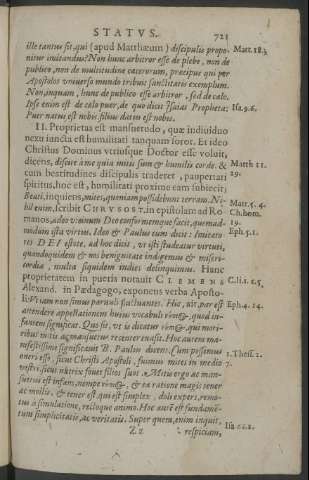 STATVS. 721
ille tantus sit, qui (apud Matthæum) discipulis propo-
nitur imitandus? Non hunc arbitror esse de plebe, non de
publico, non de multitudine cæterorum, præcipue qui per
Apostolos vniuerso mundo tribuit sanctitatis exemplum.
Non, inquam, hunc de publico esse arbitror, sed de cælo.
Ipse enim est de cælo puer, de quo dicit Isaias Propheta:
Puer natus est nobis filius datus est nobis.
II. Proprietas est mansuetudo, quæ indiuiduo
nexu iuncta est humilitati tanquam soror. Et ideo
Christus Dominus vtriusque Doctor esse voluit,
dicens, discite à me quia mitis sum & humilis corde. &
cum beatitudines discipulis traderet, paupertati
spiritus, hoc est, humilitati proxime eam subiecit;
Beati, inquiens, mites, quoniam possidebunt terram. Ni-
hil enim, scribit CHRYSOST. in epistolam ad Ro-
manos, adeo vicinum Deo conformemque facit, quemad-
modum ista virtus. Ideo & Paulus cum dicit: Imitato-
res DEI estote, ad hoc dicit, vt isti studeatur virtuti,
quandoquidem & nos benignitate indigemus & miseri-
cordia, multa siquidem indies delinquimus. Hanc
proprietatem in pueris notauit CLEMENS
Alexand. in Pædagogo, exponens verba Aposto-
li: Vt iam non simus paruuli fluctuantes. Huc, ait, par est
attendere appellationem huius vocabuli quod in-
fantem significat. Quo sit, vt is dicatur qui mori-
bus mitis ac mansuetus recenter euasit. Hoc autem ma-
nifestissime significauit B. Paulus dicens: Cum possemus
oneri esse, sicut Christi Apostoli, fuimus mites in medio
vestri, sicut nutrix fouet filios suos. Mitis ergo ac man-
suetus est infans, nempe & ea ratione magis tener
ac mollis, & tener est qui est simplex, doli expers, remo-
tus à simulatione, rectoque animo. Hoc autem est fundamen-
tum simplicitatis, ac veritatis. Super quem, enim inquit,
Zz respiciam,
Matt. 18.3
Isa. 9.6.
Matth 11.
29.
Matt. 5.4.
Ch. hom.
19.
Eph. 5.1.
Cl. li. 1. c.5
Eph. 4. 14.
1. Thess. 2.
7.
Isa. 66.2.